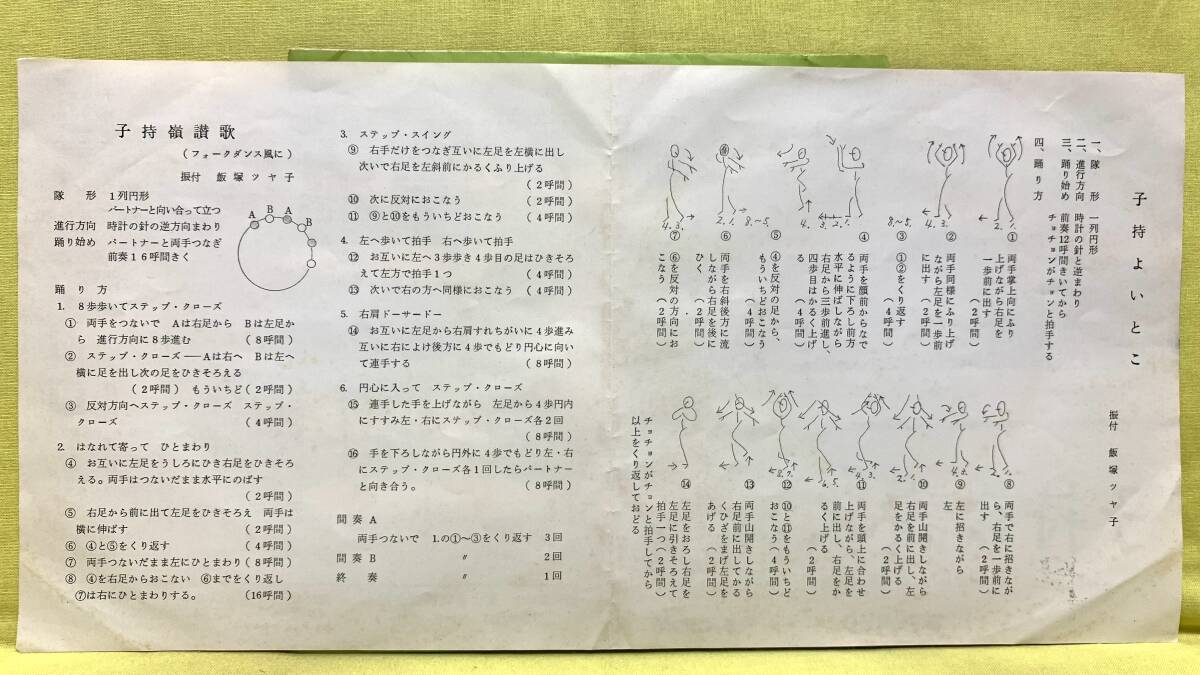 子持嶺讃歌
（フォークダンス風に）
振付 飯塚ツヤ子
隊形 1列円形
パートナーと向い合って立つ
進行方向 時計の針の逆方向まわり
踊り始め パートナーと両手つなぎ
前奏16呼間きく
A B A B
踊り方
1. 8歩歩いてステップ・クローズ
① 両手をつないで Aは右足から Bは左足か
ら 進行方向に8歩進む (8呼間)
② ステップ・クローズ──Aは右へ Bは左へ
横に足を出し次の足をひきそろえる
(2呼間) もういちど(2呼間)
③ 反対方向へステップ・クローズ ステップ・
クローズ (4呼間)
2. はなれて寄って ひとまわり
④ お互いに左足をうしろにひき右足をひきそろ
える。両手はつないだまま水平にのばす
(2呼間)
⑤ 右足から前に出て左足をひきそろえ 両手は
横に伸ばす (2呼間)
⑥ ④と⑤をくり返す (4呼間)
⑦ 両手つないだまま左にひとまわり(8呼間)
⑧ ④を右足からおこない ⑥までをくり返し
⑦は右にひとまわりする。 (16呼間)
3. ステップ・スイング
⑨ 右手だけをつなぎ互いに左足を左横に出し
次いで右足を左斜前にかるくふり上げる
(2呼間)
⑩ 次に反対におこなう (2呼間)
⑪ ⑨と⑩をもういちどおこなう (4呼間)
4. 左へ歩いて拍手 右へ歩いて拍手
⑫ お互いに左へ3歩歩き4歩目の足はひきそろ
えて左方で拍手1つ (4呼間)
⑬ 次いで右の方へ同様におこなう (4呼間)
5. 右肩ドーサードー
⑭ お互いに左足から右肩すれちがいに4歩進み
互いに右によけ後方に4歩でもどり円心に向い
て連手する (8呼間)
6. 円心に入って ステップ・クローズ
⑮ 連手した手を上げながら 左足から4歩円内
にすすみ左・右にステップ・クローズ各2回
(8呼間)
⑯ 手を下ろしながら円外に4歩でもどり左・右
にステップ・クローズ各1回したらパートナー
と向き合う。 (8呼間)
間奏A
両手つないで 1.の①～③をくり返す 3回
間奏B 〃 2回
終奏 〃 1回
子持よいとこ
振付 飯塚ツヤ子
一、隊形 一列円形
二、進行方向 時計の針と逆まわり
三、踊り始め 前奏12呼間きいてから
チョチョンがチョンと拍手する
四、踊り方
① 両手掌上向にふり
上げながら右足を
一歩前に出す
② 両手同様にふり上げ
ながら左足を一歩前
に出す (2呼間)
③ ①②をくり返す
(4呼間)
④ 両手を顔前からなで
るように下ろし前方
水平に伸ばしながら
右足から三歩前進し、
四歩目はかるく上げ
る (4呼間)
⑤ ④を反対の足から、
もういちどおこなう
(4呼間)
⑥ 両手を右斜後方に流
しながら右足を後に
ひく (2呼間)
⑦ ⑥を反対の方向にお
こなう (2呼間)
⑧ 両手で右に招きなが
ら、右足を一歩前に
出す (2呼間)
⑨ 左に招きながら
左
⑩ 両手山開きしながら
右足を前に出し、左
足をかるく上げる
(2呼間)
⑪ 両手を頭上に合わせ
上げながら、左足を
前に出し、右足をか
るく上げる
(2呼間)
⑫ ⑩と⑪をもういちど
おこなう (4呼間)
⑬ 両手山開きしながら
右足前に出してかる
くひざをまげ左足を
あげる (2呼間)
⑭ 左足をおろし右足を
左足に引きそろえて
拍手一つ (2呼間)
チョチョンがチョンと拍手してから
以上をくり返しておどる